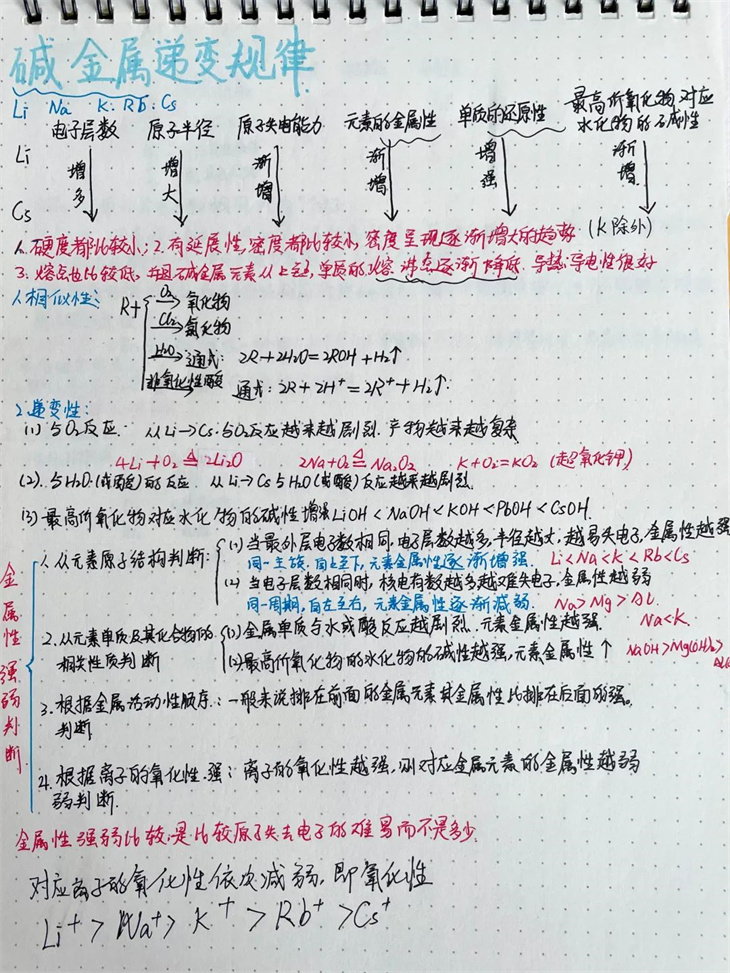 碱金属递变规律
Li Na K Rb Cs
电子层数 原子半径 原子失电能力 元素的金属性 单质的还原性 最高价氧化物对应水化物的碱性
Li 增多 增大 渐增 渐增 增强 渐增
Cs (K除外)
1.硬度都比较小;2.有延展性,密度都比较小,密度呈现逐渐增大的趋势
3.熔点也比较低,并且碱金属元素从上至下,单质的熔沸点逐渐降低.导热导电性很好
1.相似性:
R+ O₂→氧化物
Cl₂→氯化物
H₂O→通式: 2R+2H₂O=2ROH+H₂↑
非氧化性酸→通式: 2R+2H⁺=2R⁺+H₂↑.
2.递变性:
(1)与O₂反应. 从Li→Cs.与O₂反应越来越剧烈.产物越来越复杂
4Li+O₂≜2Li₂O 2Na+O₂≜Na₂O₂ K+O₂=KO₂ (超氧化钾)
(2).与H₂O(或酸)的反应. 从Li→Cs与H₂O(或酸)反应越来越剧烈.
(3)最高价氧化物对应水化物的碱性增强LiOH<NaOH<KOH<PbOH<CsOH.
金属性强弱判断.
1.从元素原子结构判断: (1)当最外层电子数相同,电子层数越多,半径越大,越易失电子,金属性越强
同一主族,自上至下,元素金属性逐渐增强. Li<Na<K<Rb<Cs
(2)当电子层数相同时,核电荷数越多越难失电子,金属性越弱
同一周期,自左至右,元素金属性逐渐减弱. Na>Mg>AL.
2.从元素单质及其化合物的 (1)金属单质与水或酸反应越剧烈.元素金属性越强. Na<K.
相关性质判断 (2)最高价氧化物的水化物的碱性越强,元素金属性↑ NaOH>Mg(OH)₂>
3.根据金属活动性顺序:一般来说排在前面的金属元素其金属性比排在后面的强。
判断
4.根据离子的氧化性.强:离子的氧化性越强,则对应金属元素的金属性越弱
弱判断.
金属性强弱比较,是比较原子失去电子的难易而不是多少.
对应离子的氧化性依次减弱,即氧化性
Li⁺>Na⁺>K⁺>Rb⁺>Cs⁺